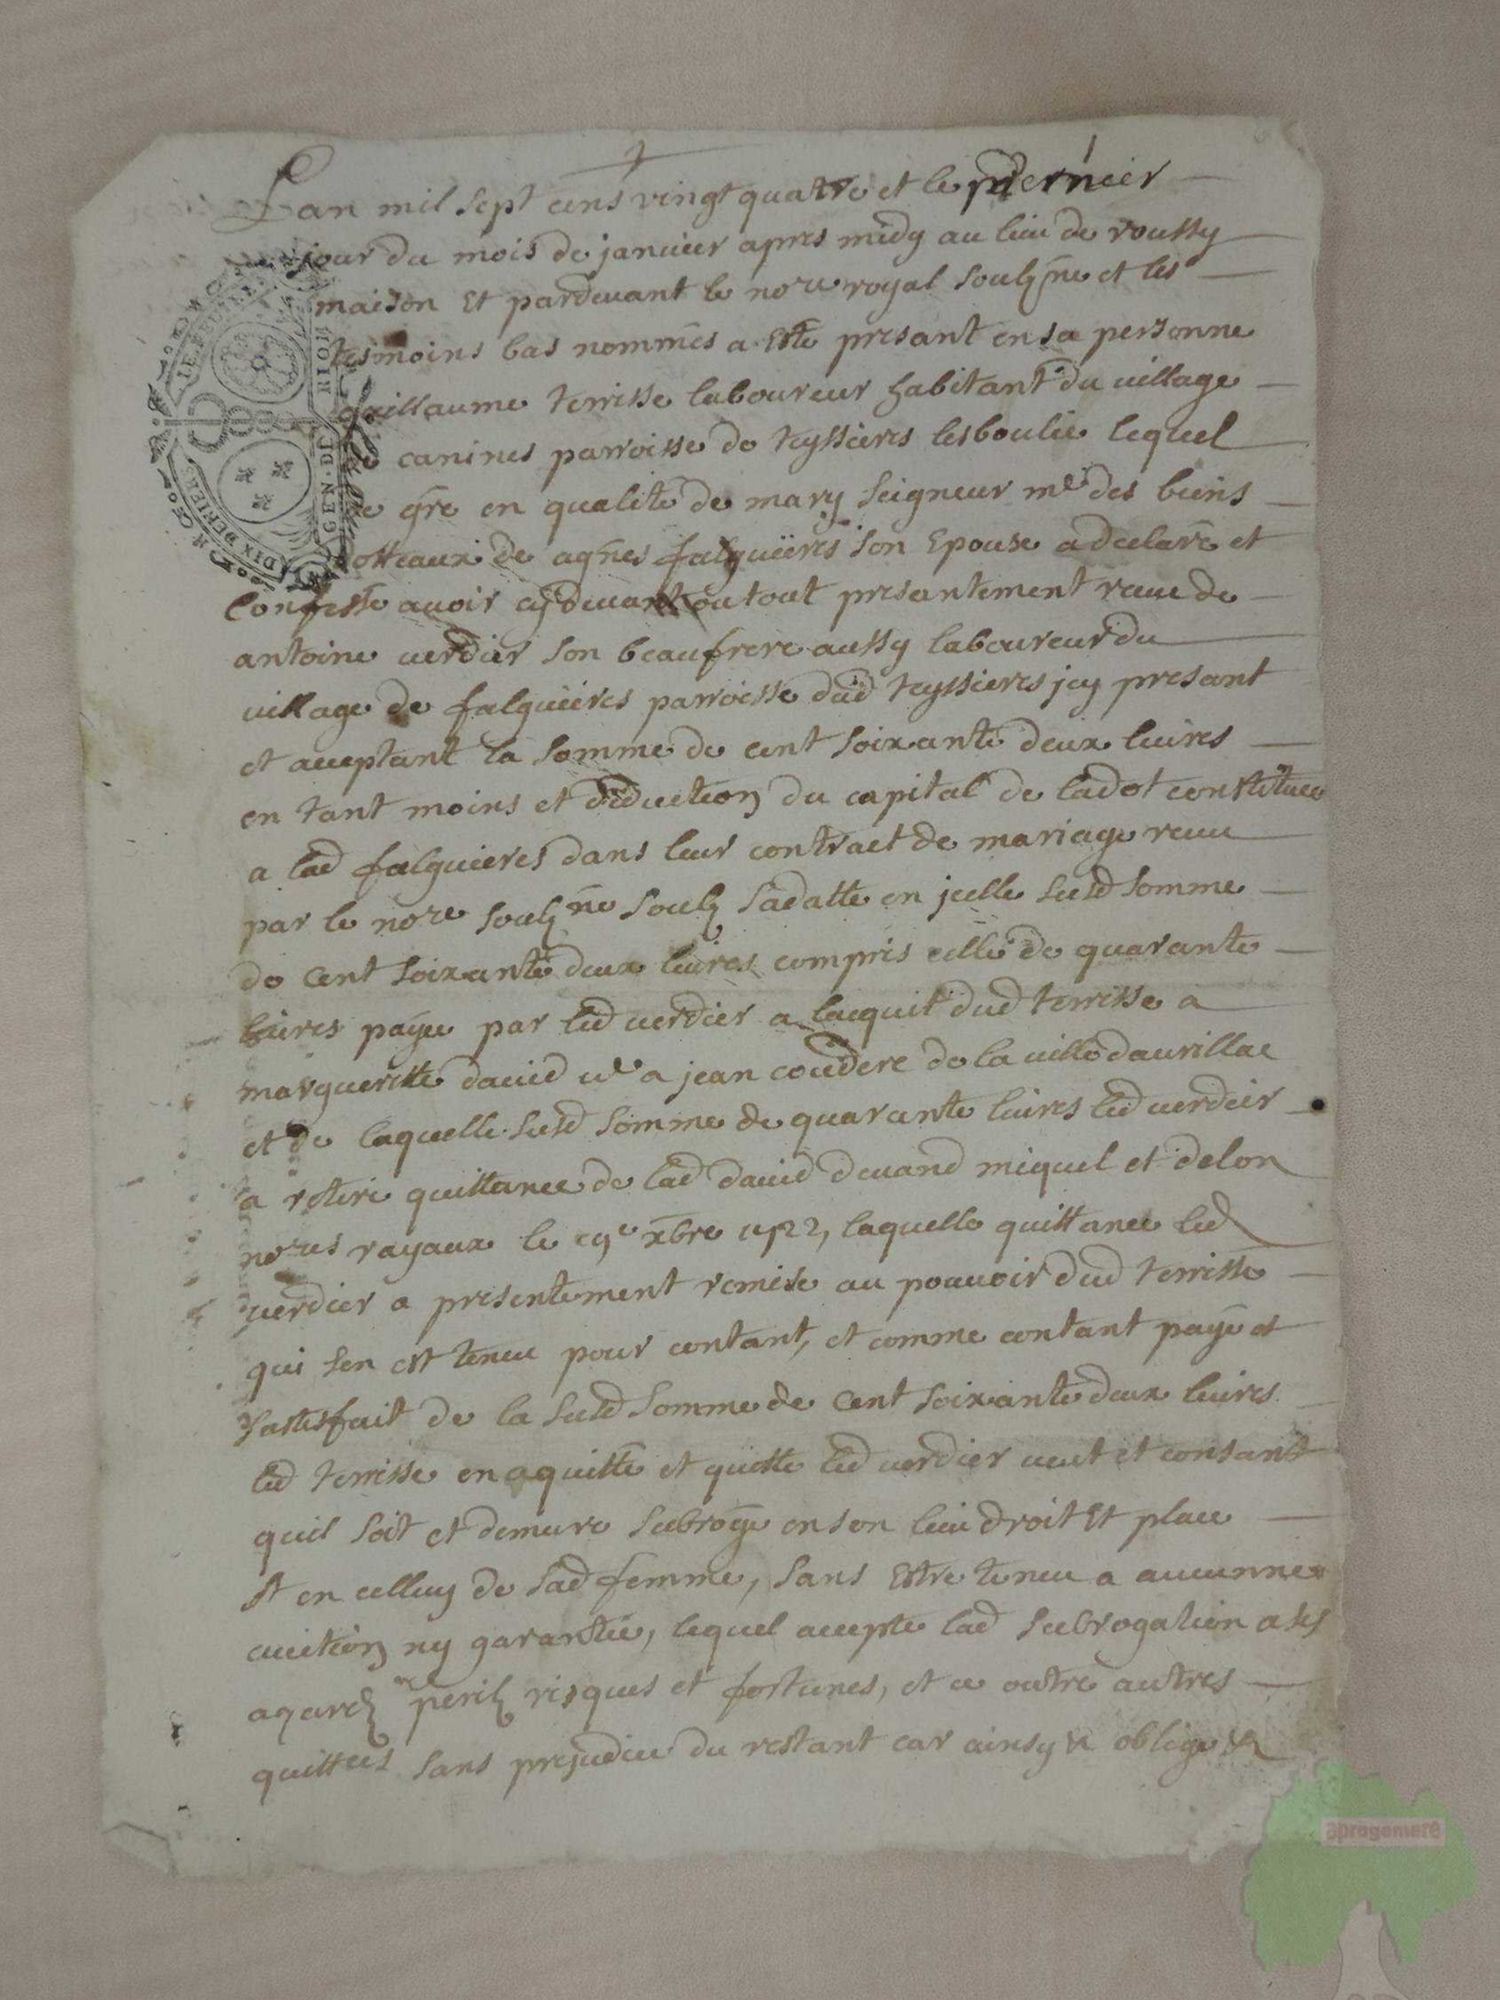 Lan mil sept cens vingt quatre et le premier
jour du mois de janvier apres midy au lieu de roussy
maison Et pardevant le nore royal soulzne et les
tesmoins bas nommés a Esté presant en sa personne
guillaume terrisse laboureur habitant du village
de canines parroisse de teyssieres lesboulie lequel
de gre en qualité de mary seigneur me des biens
dotteaux de agnes falguieres son Epouse a declaré et
Confessé avoir cy devant ou tout presantement receu de
antoine verdier son beaufrere aussy laboureur du
village de falguieres parroisse dud teyssieres jcy presant
et aceptant la somme de cent soixante deux livres
en tant moins et deduction du capital de la dot constituee
a lad falguieres dans leur contract de mariage receu
par le nore soulzne soulz sa datte en jcelle susd somme
de cent soixante deux livres compris celle de quarante
livres payee par led verdier a lacquit dud terrisse a
margueritte david ve a jean couderc de la ville daurillac
et de laquelle susd somme de quarante livres led verdier
a retiré quittance de lad david devand miquel et delon
nores royaux le 19e xbre 1722, laquelle quittance led
verdier a presentement remise au pouvoir dud terrisse
qui sen est teneu pour contant, et comme contant payé et
satisfait de la susd somme de cent soixante deux livres
led terrisse en aquitte et quitte led verdier veut et consant
quil soit et demure subrogé en son lieu droit Et place
Et en celluy de sad femme, sans Estre teneu a aucunne
eviction ny garantie, lequel accepte lad subrogation a ses
perilz risques et fortunes, et ce outre autres
quittces sans prejudice du restant car ainsy &c obligé &c
JE. FEUILLE
DIX DENIERS
GEN. DE RIOM
aprogemere